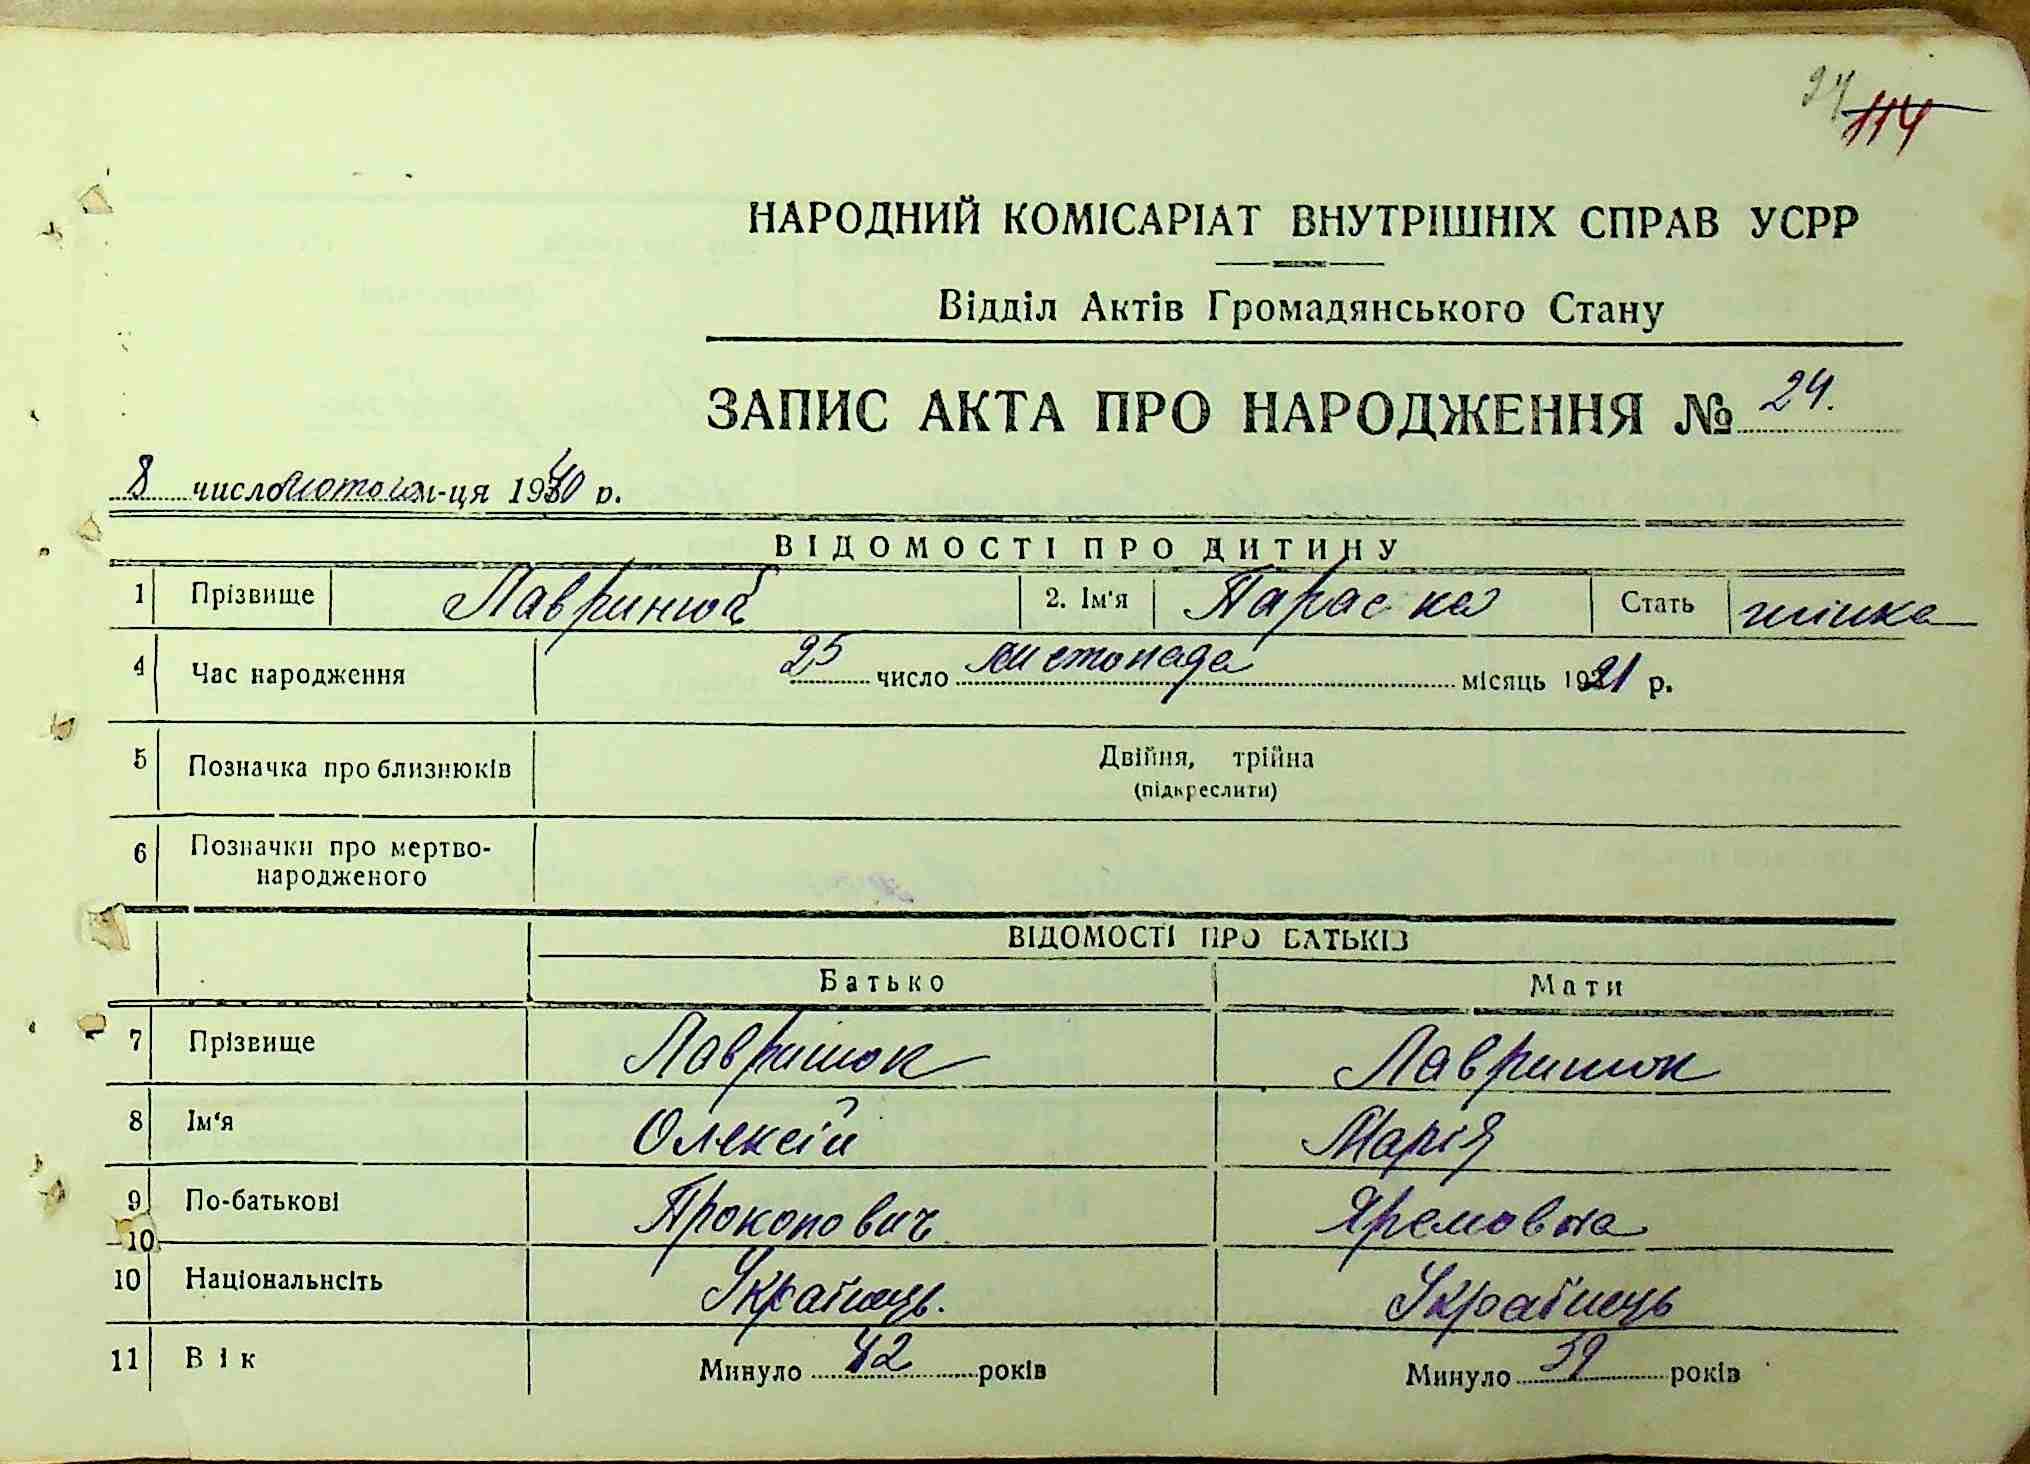 24
114
НАРОДНИЙ КОМІСАРІАТ ВНУТРІШНІХ СПРАВ УСРР
Відділ Актів Громадянського Стану
ЗАПИС АКТА ПРО НАРОДЖЕННЯ № 24.
8 число лютого м-ця 1940 р.
ВІДОМОСТІ ПРО ДИТИНУ
1 Прізвище 2. Ім'я Параска Стать жінка
4 Час народження 25 число листопада місяць 1921 р.
5 Позначка про близнюків Двійня, трійна
(підкреслити)
6 Позначки про мертво-
народженого
ВІДОМОСТІ ПРО БАТЬКІВ
Батько Мати
7 Прізвище
8 Ім'я Олексій Марія
9 По-батькові Прокопович Яремовна
10
10 Національнсіть Українець. Українець
11 Вік Минуло 42 років Минуло 39 років